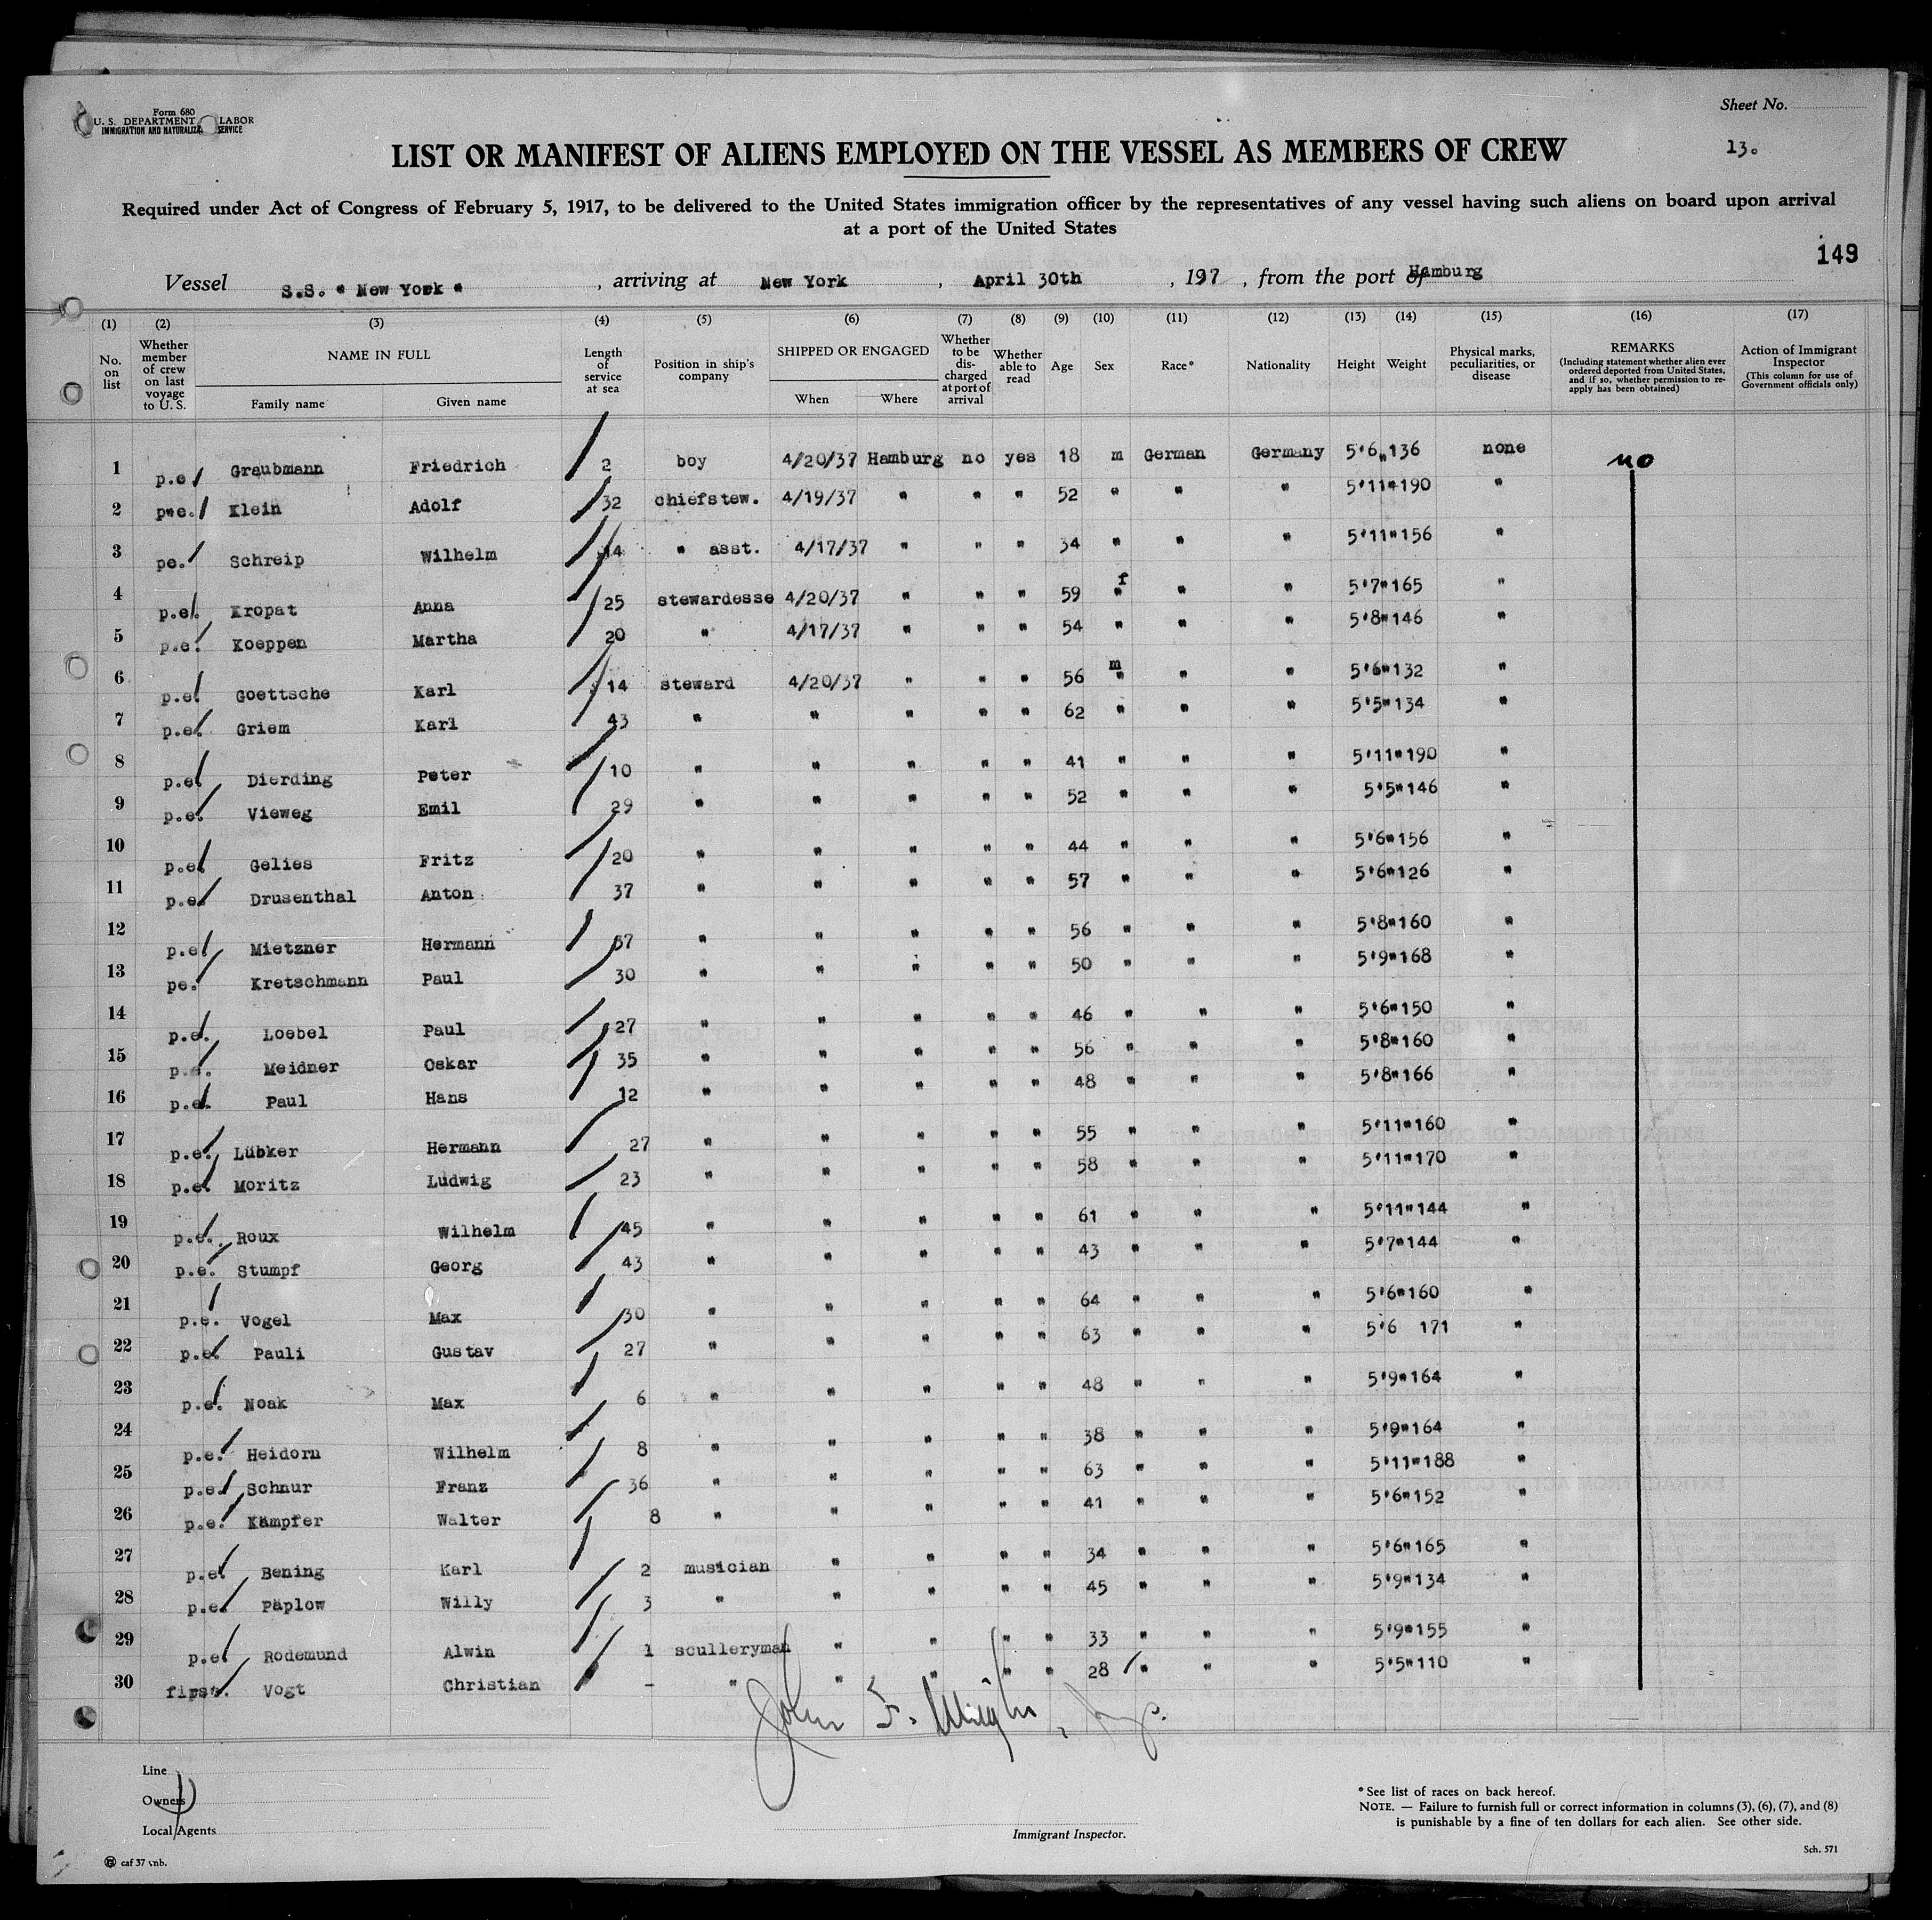 Form 680
U. S. DEPARTMENT LABOR
IMMIGRATION AND NATURALIZA SERVICE
Sheet No.
13.
LIST OR MANIFEST OF ALIENS EMPLOYED ON THE VESSEL AS MEMBERS OF CREW
Required under Act of Congress of February 5, 1917, to be delivered to the United States immigration officer by the representatives of any vessel having such aliens on board upon arrival
at a port of the United States
149
Vessel S.S. " New York " , arriving at New York , April 30th , 197 , from the port of Hamburg
(1) (2) (3) (4) (5) (6) (7) (8) (9) (10) (11) (12) (13) (14) (15) (16) (17)
No. on list Whether member of crew on last voyage to U. S. NAME IN FULL Family name Given name Length of service at sea Position in ship's company SHIPPED OR ENGAGED When Where Whether to be discharged at port of arrival Whether able to read Age Sex Race* Nationality Height Weight Physical marks, peculiarities, or disease REMARKS (Including statement whether alien ever ordered deported from United States, and if so, whether permission to re-apply has been obtained) Action of Immigrant Inspector (This column for use of Government officials only)
1 p.e Graubmann Friedrich 2 boy 4/20/37 Hamburg no yes 18 m German Germany 5'6" 136 none no
2 pwe. Klein Adolf 32 chiefstew. 4/19/37 " " " 52 " " " 5'11" 190 "
3 pe. Schreip Wilhelm 14 " asst. 4/17/37 " " " 34 " " " 5'11" 156 "
4 p.e. Kropat Anna 25 stewardesse 4/20/37 " " " 59 f " " 5'7" 165 "
5 p.e. Koeppen Martha 20 " 4/17/37 " " " 54 " " " 5'8" 146 "
6 p.e. Goettsche Karl 14 steward 4/20/37 " " " 56 m " " 5'6" 132 "
7 p.e. Griem Karl 43 " " " " " 62 " " " 5'5" 134 "
8 p.e. Dierding Peter 10 " " " " " 41 " " " 5'11" 190 "
9 p.e. Vieweg Emil 29 " " " " " 52 " " " 5'5" 146 "
10 p.e. Gelies Fritz 20 " " " " " 44 " " " 5'6" 156 "
11 p.e. Drusenthal Anton 37 " " " " " 57 " " " 5'6" 126 "
12 p.e. Mietzner Hermann 37 " " " " " 56 " " " 5'8" 160 "
13 pe. Kretschmann Paul 30 " " " " " 50 " " " 5'9" 168 "
14 p.e. Loebel Paul 27 " " " " " 46 " " " 5'6" 150 "
15 p.e. Meidner Oskar 35 " " " " " 56 " " " 5'8" 160 "
16 p.e. Paul Hans 12 " " " " " 48 " " " 5'8" 166 "
17 p.e. Lübker Hermann 27 " " " " " 55 " " " 5'11" 160 "
18 p.e. Moritz Ludwig 23 " " " " " 58 " " " 5'11" 170 "
19 p.e. Roux Wilhelm 45 " " " " " 61 " " " 5'11" 144 "
20 p.e. Stumpf Georg 43 " " " " " 43 " " " 5'7" 144 "
21 p.e. Vogel Max 30 " " " " " 64 " " " 5'6" 160 "
22 p.e. Pauli Gustav 27 " " " " " 63 " " " 5'6 171 "
23 p.e. Noak Max 6 " " " " " 48 " " " 5'9" 164 "
24 p.e. Heidorn Wilhelm 8 " " " " " 38 " " " 5'9" 164 "
25 p.e. Schnur Franz 36 " " " " " 63 " " " 5'11" 188 "
26 p.e. Kämpfer Walter 8 " " " " " 41 " " " 5'6" 152 "
27 p.e. Bening Karl 2 musician " " " " 34 " " " 5'6" 165 "
28 p.e. Päplow Willy 3 " " " " " 45 " " " 5'9" 134 "
29 p.e. Rodemund Alwin 1 sculleryman " " " " 33 " " " 5'9" 155 "
30 first. Vogt Christian - " " " " " 28 " " " 5'5" 110 "
John F.
Line
Owners
Local Agents
Immigrant Inspector.
* See list of races on back hereof.
NOTE. — Failure to furnish full or correct information in columns (3), (6), (7), and (8)
is punishable by a fine of ten dollars for each alien. See other side.
caf 37 vnb.
Sch. 571